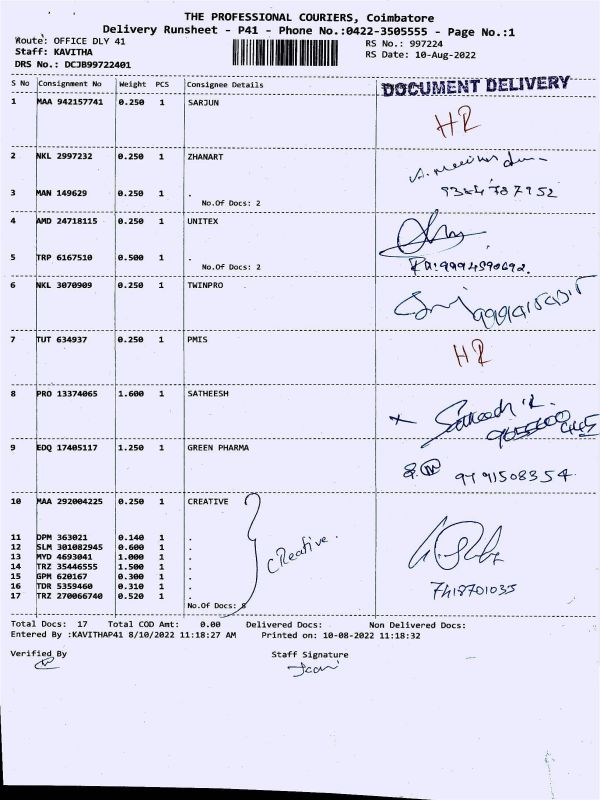 THE PROFESSIONAL COURIERS, Coimbatore
Delivery Runsheet - P41 - Phone No.:0422-3505555 - Page No.:1
Route: OFFICE DLY 41
RS No.: 997224
Staff: KAVITHA
RS Date: 10-Aug-2022
DRS No.: DCJB99722401
S No Consignment No Weight PCS Consignee Details DOCUMENT DELIVERY
1 MAA 942157741 0.250 1 SARJUN
2 NKL 2997232 0.250 1 ZHANART
3 MAN 149629 0.250 1 .
No.Of Docs: 2
4 AMD 24718115 0.250 1 UNITEX
5 TRP 6167510 0.500 1 .
No.Of Docs: 2
6 NKL 3070909 0.250 1 TWINPRO
7 TUT 634937 0.250 1 PMIS
8 PRO 13374065 1.600 1 SATHEESH
Satheesh
9 EDQ 17405117 1.250 1 GREEN PHARMA
9791508354
10 MAA 292004225 0.250 1 CREATIVE
11 DPM 363021 0.140 1 .
12 SLM 301082945 0.600 1 .
Creative.
13 MYD 4693041 1.000 1 .
14 TRZ 35446555 1.500 1 .
15 GPM 620167 0.300 1 .
16 TDR 5359460 0.310 1 .
7418701035
17 TRZ 270066740 0.520 1 .
No.Of Docs: 8
Total Docs: 17 Total COD Amt: 0.00 Delivered Docs: Non Delivered Docs:
Entered By :KAVITHAP41 8/10/2022 11:18:27 AM Printed on: 10-08-2022 11:18:32
Verified By Staff Signature